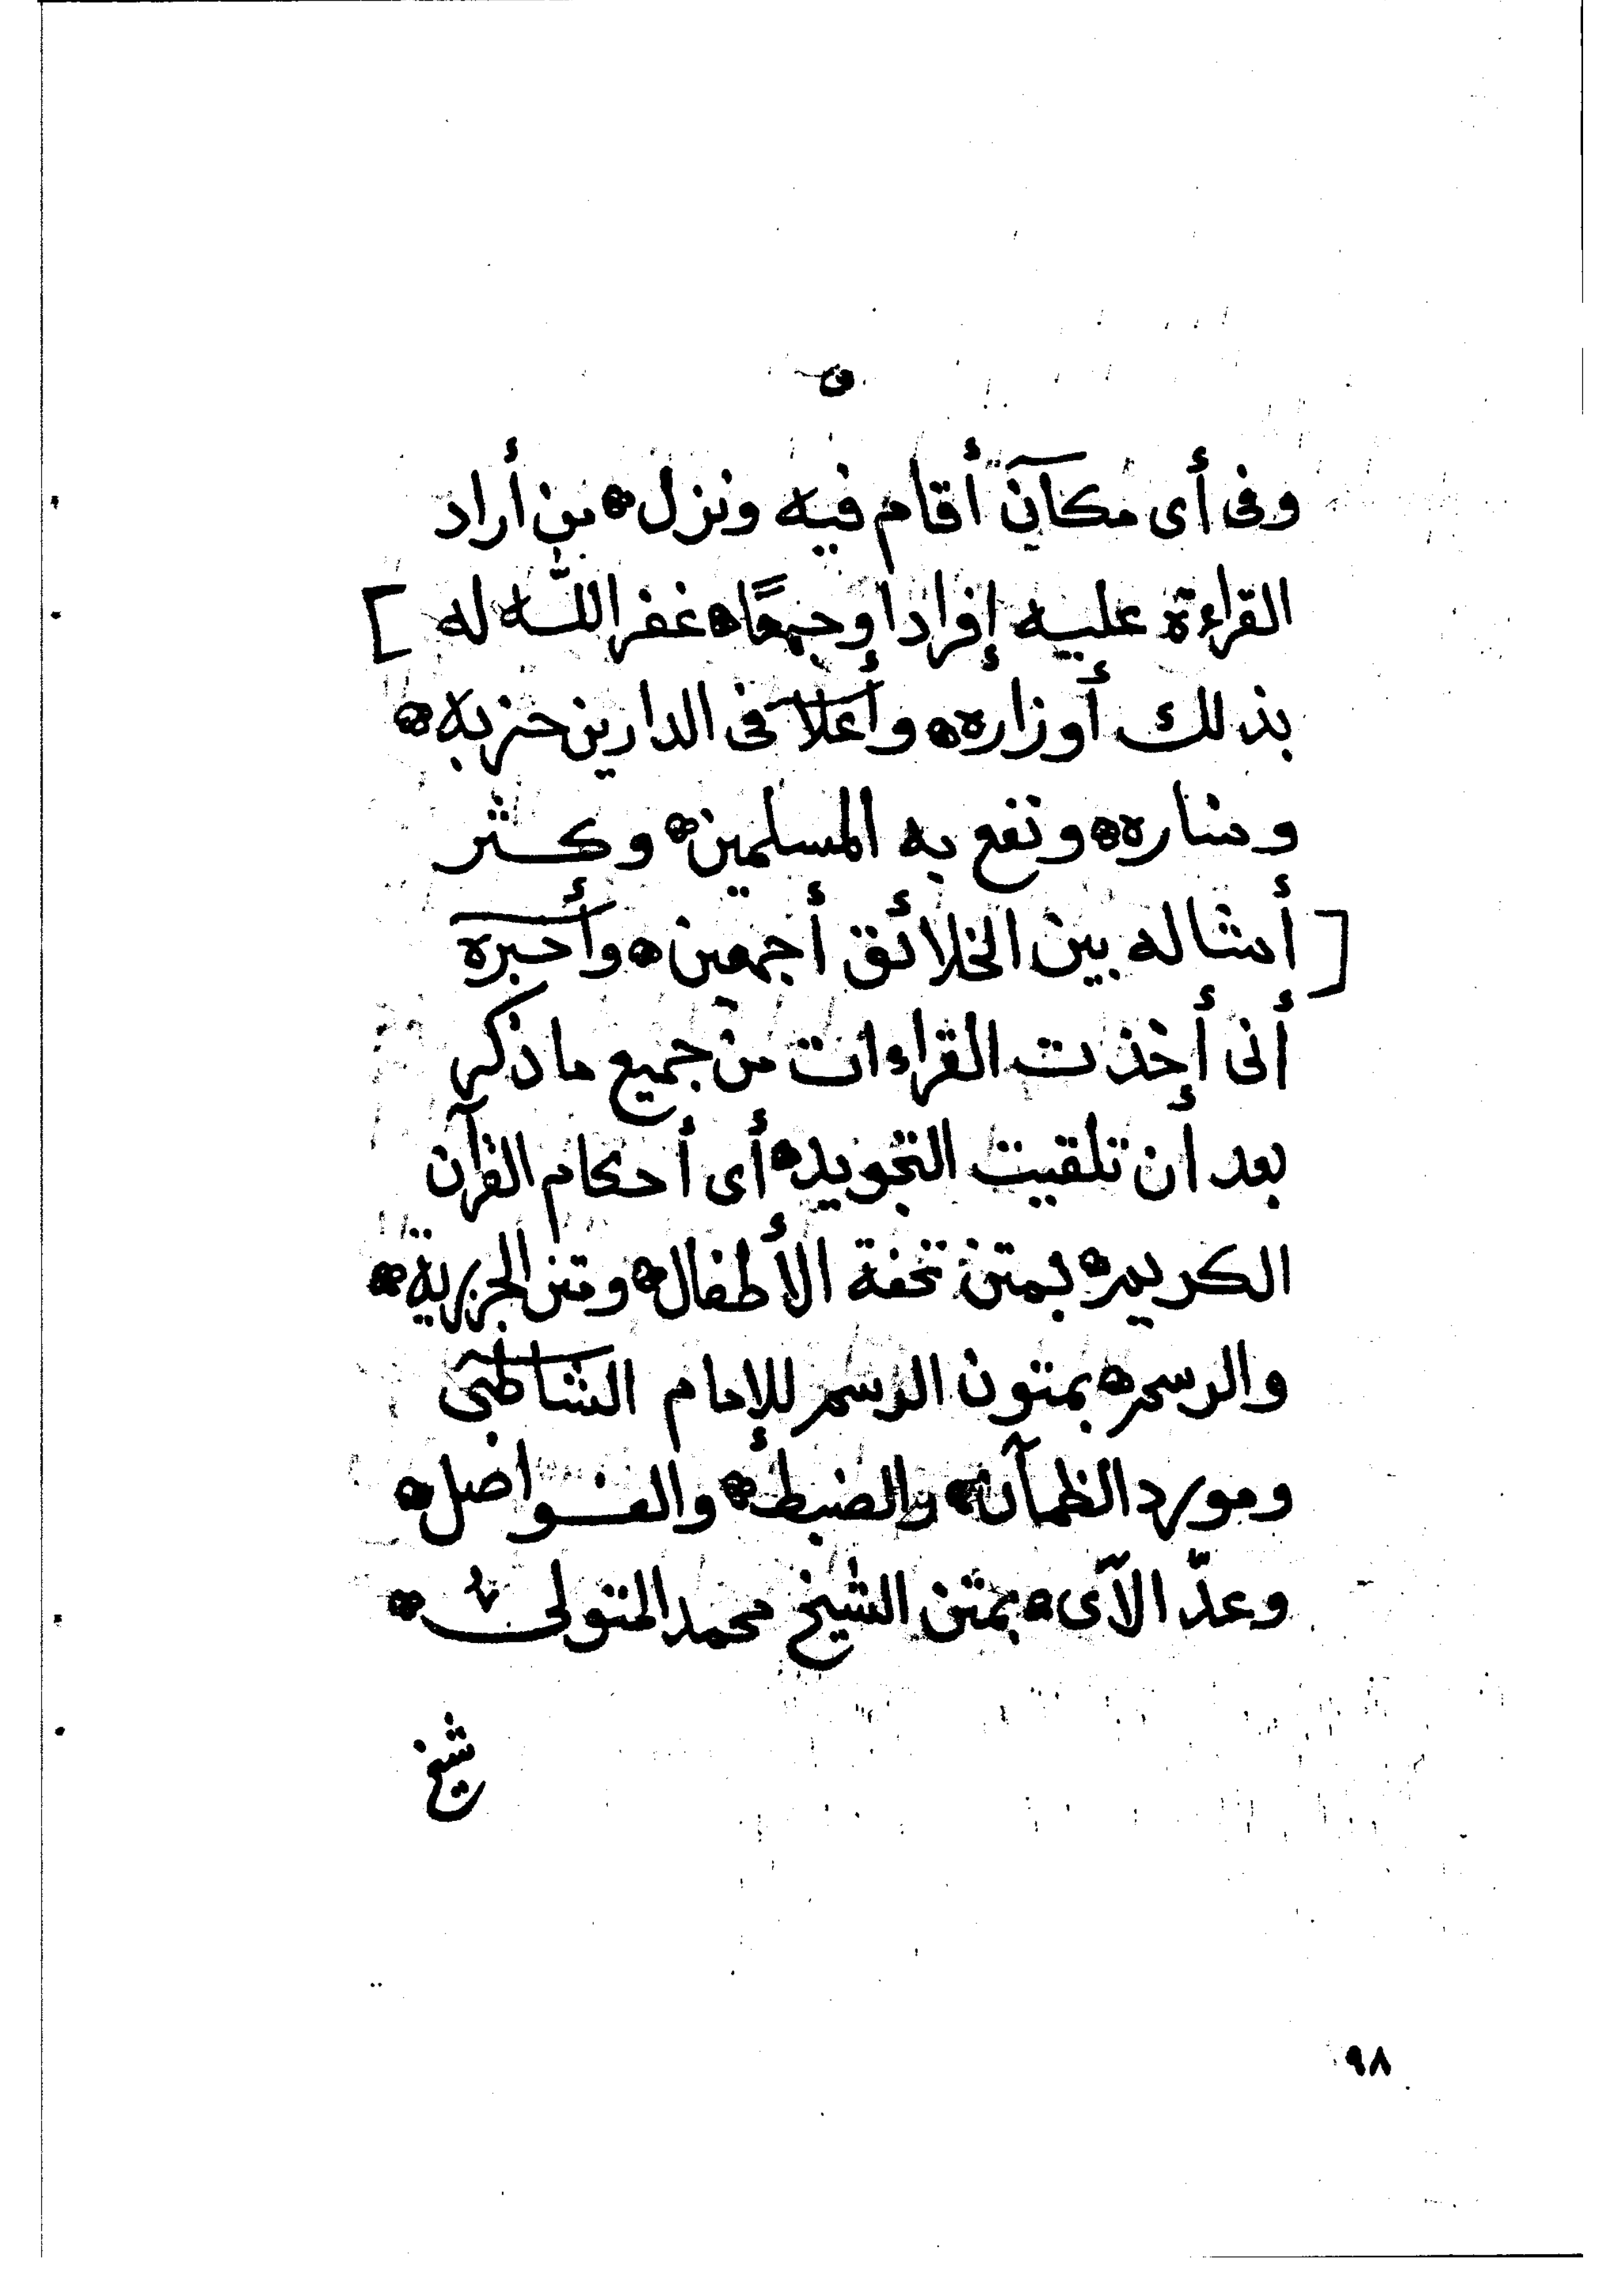 وفى أى مكان أقام فيه ونزل من أراد
القراءة عليه إفرادا وجمعًا غفر اللّه له [
بذلك أوزاره وأعلا فى الدارين حزبه
ومناره ونفع به المسلمين وكثر
[ أمثاله بين الخلائق أجمعين وأخبره
أنى أخذت القراءات من جميع ما ذكر
بعد أن تلقيت التجويد أى أحكام القرآن
الكريم بمتن تحفة الأطفال ومتن الجزرية
والرسم بمتون الرسم للإمام الشاطبى
ومورد الظمآن والضبط والفواصل
وعدّ الآى بمتن الشيخ محمد المتولى
شيخ
٩٨